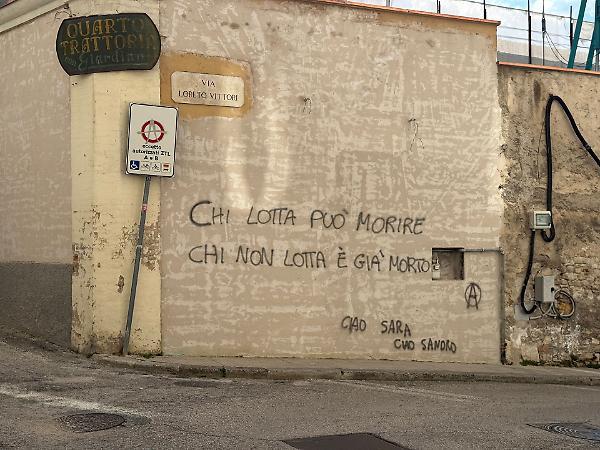 QUARTO
TRATTORIA
Giardino
VIA
LORETO VITTORI
eccetto
autorizzati ZTL
A e B
CHI LOTTA PUÒ MORIRE
CHI NON LOTTA È GIÀ MORTO
A
CIAO SARA
CIAO SANDRO